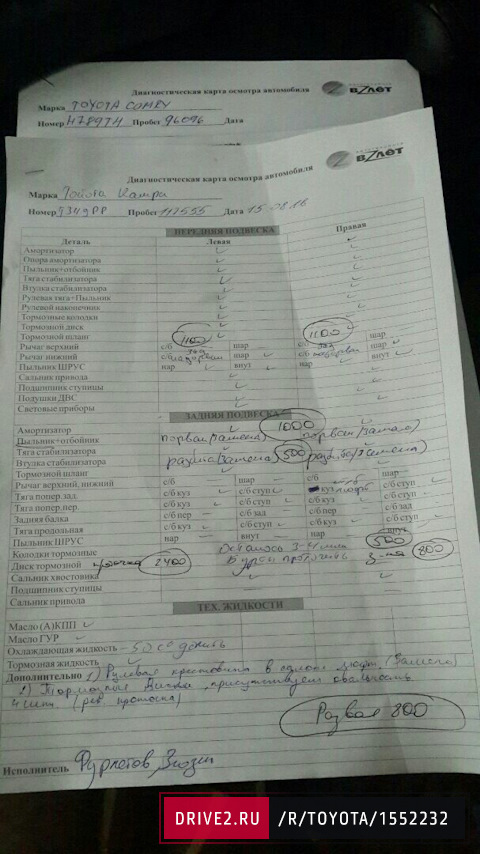 Диагностическая карта осмотра автомобиля
вZлет
Марка TOYOTA COMRY
Номер H789TH Пробег 96096 Дата
Диагностическая карта осмотра автомобиля
вZлет
Марка Тойота Камри
Номер 734 РР Пробег 117555 Дата 15.08.16
ПЕРЕДНЯЯ ПОДВЕСКА
Деталь Левая Правая
Амортизатор
Опора амортизатора
Пыльник+отбойник
Тяга стабилизатора
Втулка стабилизатора
Рулевая тяга+Пыльник
Рулевой наконечник
Тормозные колодки
Тормозной диск
Тормозной шланг 1100 1100
Рычаг верхний с/б шар с/б шар
Рычаг нижний с/б зад надорван шар с/б зад надорван внут
Пыльник ШРУС нар внут нар
Сальник привода
Подшипник ступицы
Подушки ДВС
Световые приборы
ЗАДНЯЯ ПОДВЕСКА
Амортизатор 1000
Пыльник+отбойник порван (замена) порван (замена)
Тяга стабилизатора
Втулка стабилизатора разбита (замена) 500 разбита (замена)
Тормозной шланг
Рычаг верхний, нижний с/б шар с/б шар
Тяга попер.зад. с/б куз с/б ступ куз с/б ступ
Тяга попер.пер. с/б куз с/б ступ с/б куз с/б ступ
Задняя балка с/б пер с/б зад с/б пер с/б зад
Тяга продольная с/б куз с/б ступ с/б куз с/б ступ
Пыльник ШРУС нар внут нар внут
Колодки тормозные Осталось 3-4 мм 500
Диск тормозной проточка 2400 Бурт проточить з-на 800
Сальник хвостовика
Подшипник ступицы
Сальник привода
ТЕХ. ЖИДКОСТИ
Масло (А)КПП
Масло ГУР
Охлаждающая жидкость - 52 С° долить
Тормозная жидкость
Дополнительно 1) Рулевая крестовина в одном люфт (замена)
2) Тормозные диски, присутствует овальность
4 шт. (рек. проточка)
Развал 800
Исполнитель
DRIVE2.RU /R/TOYOTA/1552232